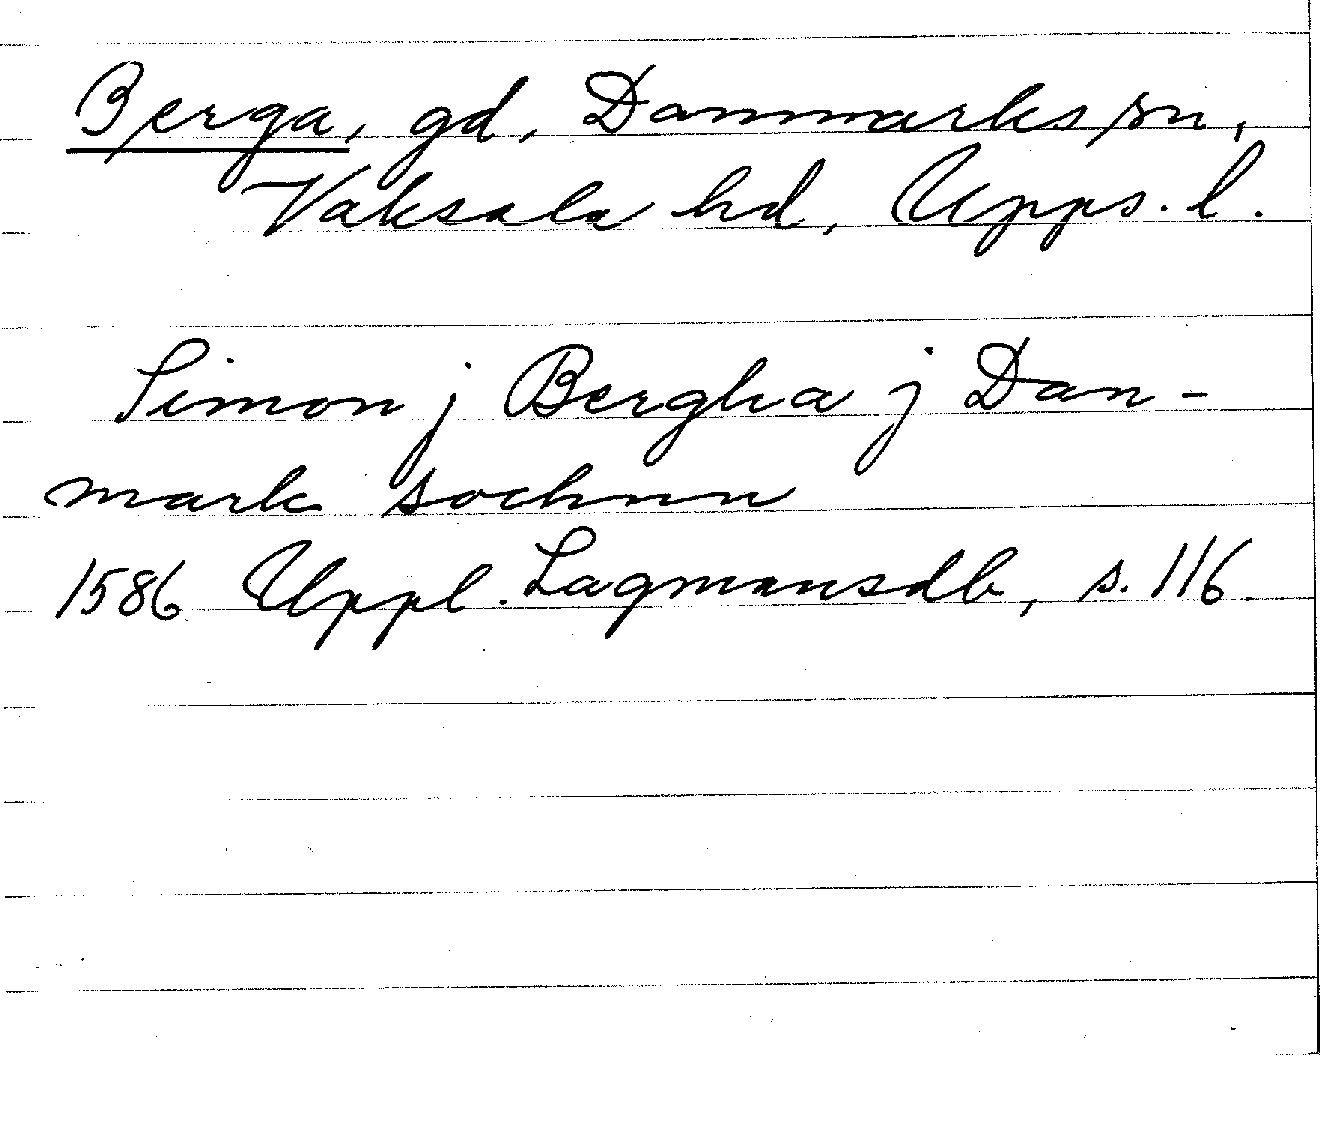 Berga, gd, Danmarks sn,
Vaksala hd, Upps. l.
Simon j Bergha j Dan-
mark sochnn
1586 Uppl. Lagmansdb, s. 116